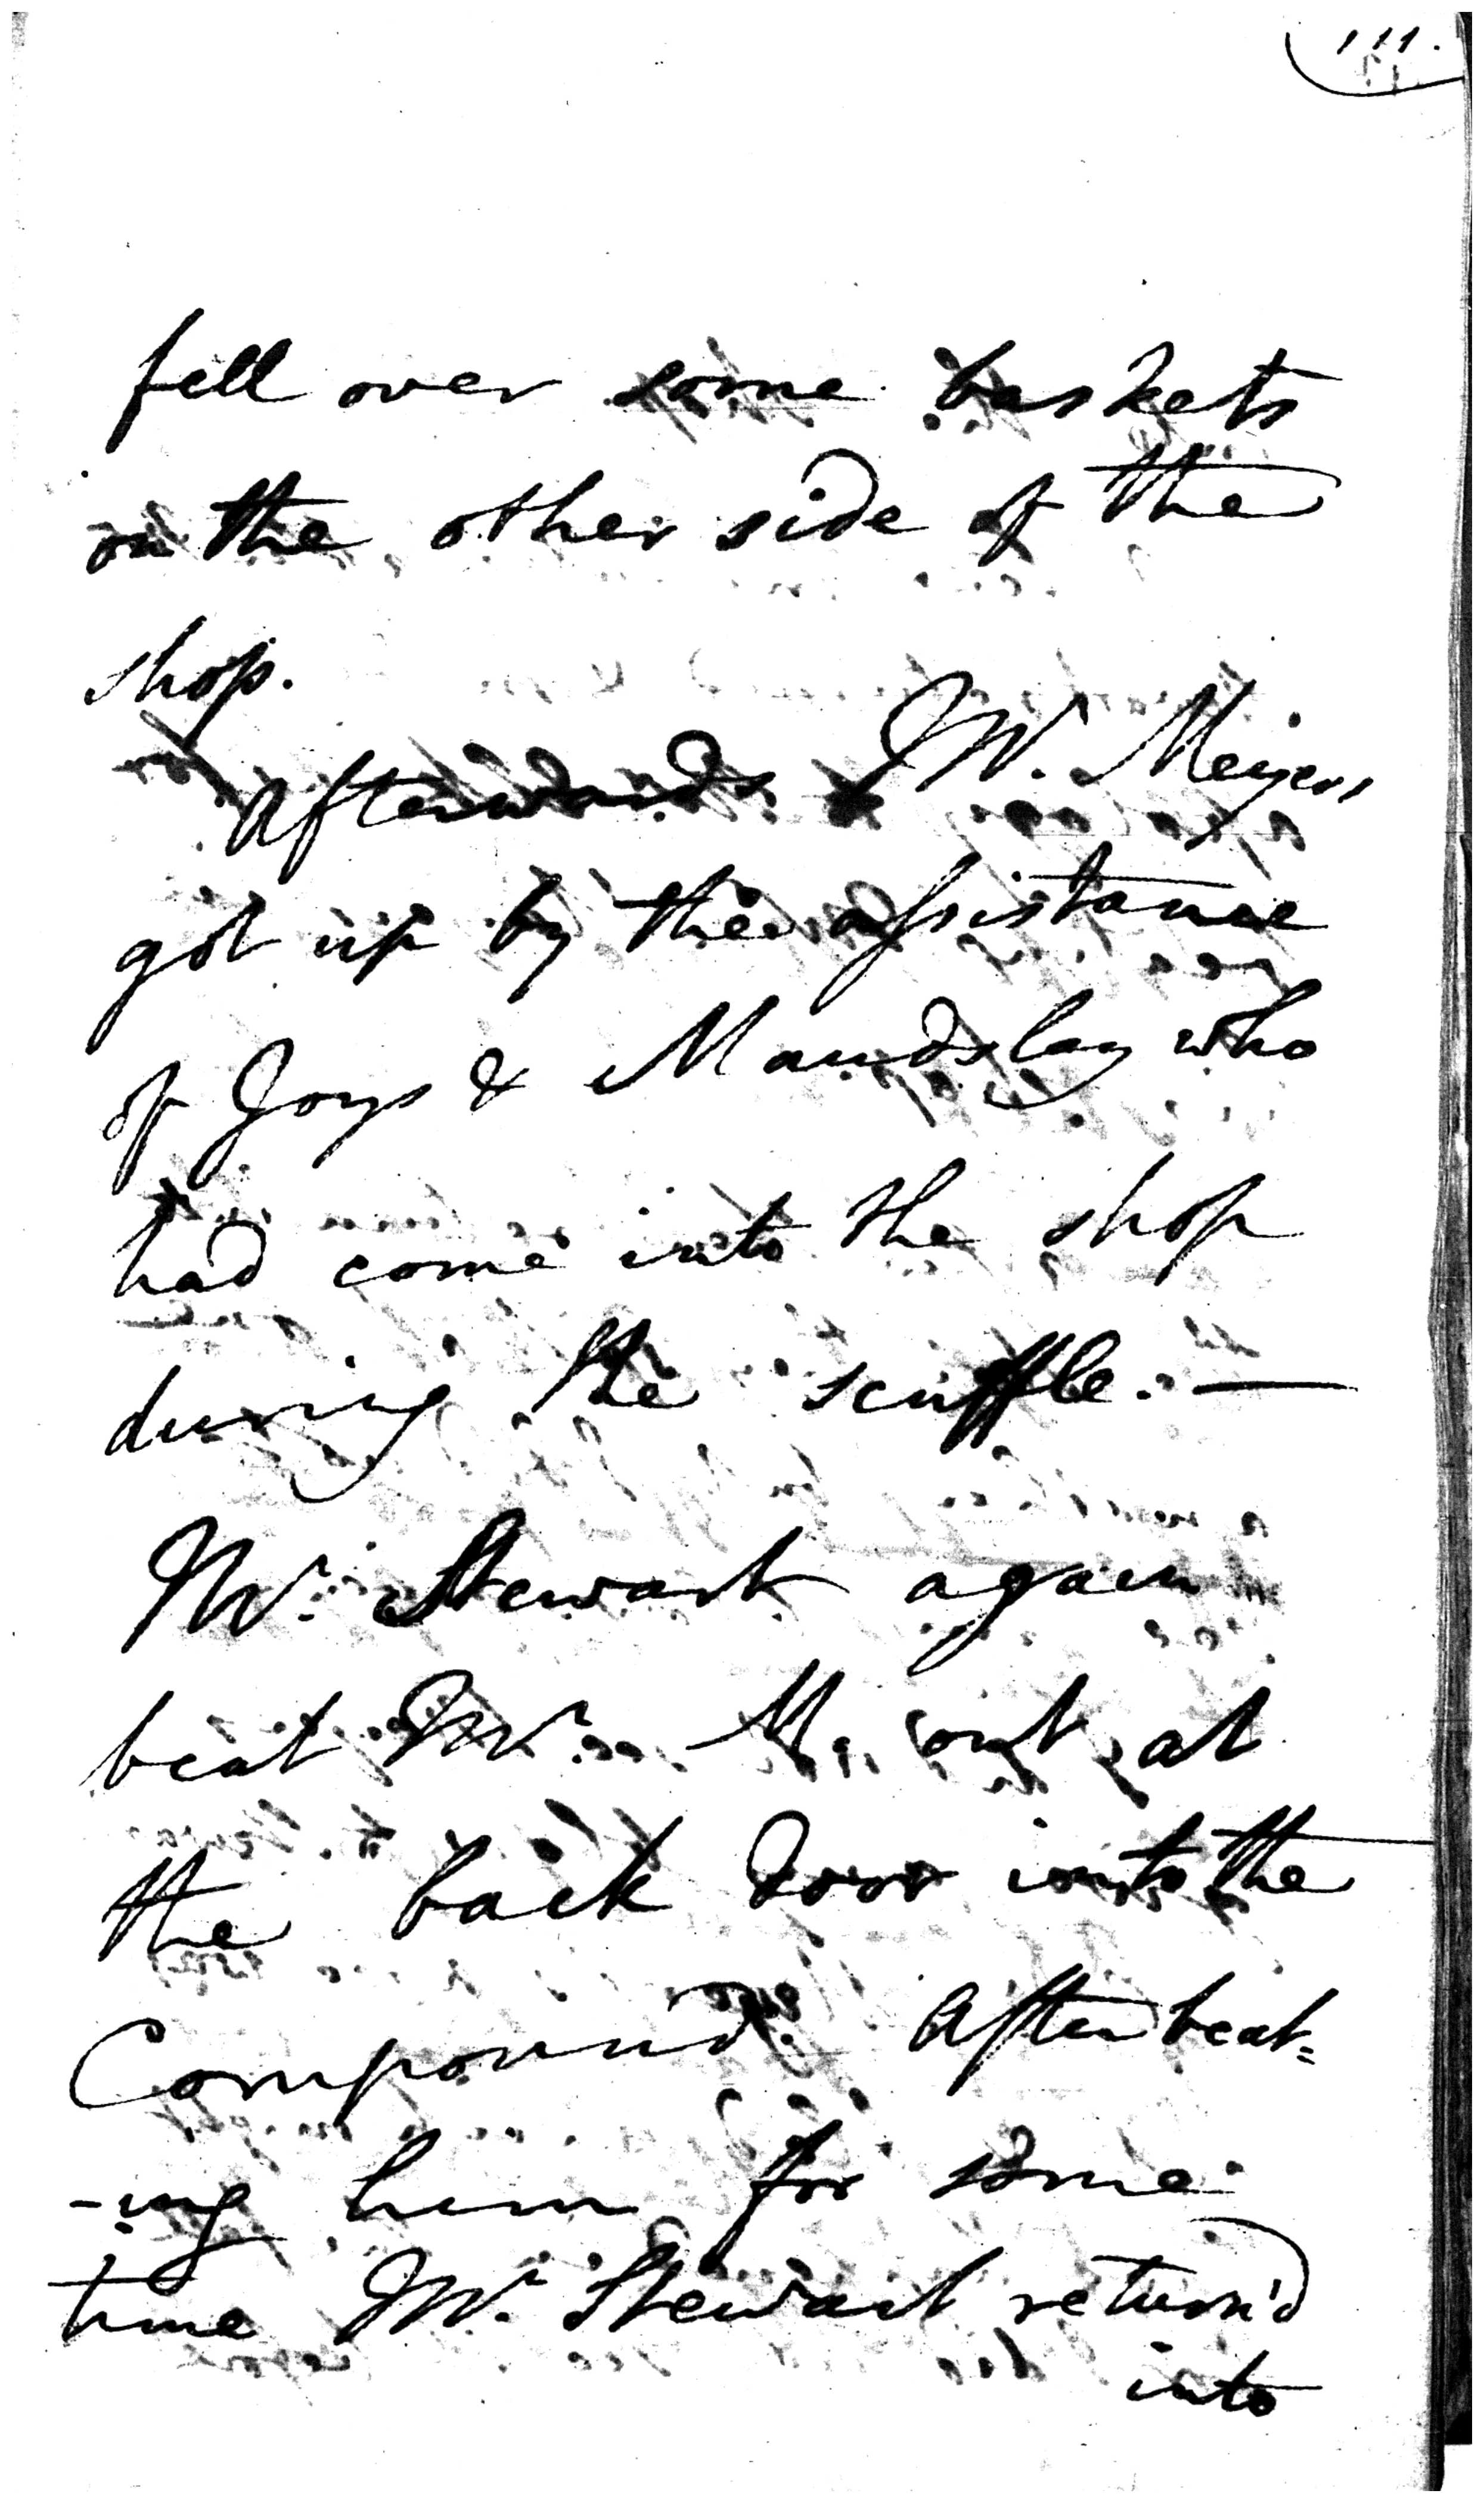 111.
fell over some baskets
on the other side of the
shop.
Afterwards Mr. Meyers
got up by the assistance
of Joys & Maudslay who
had come into the shop
during the scuffle. —
Mr. Stewart again
beat Mr. M. out at
the back door into the
Compound. After beat=
-ing him for some
time Mr. Stewart return'd
into